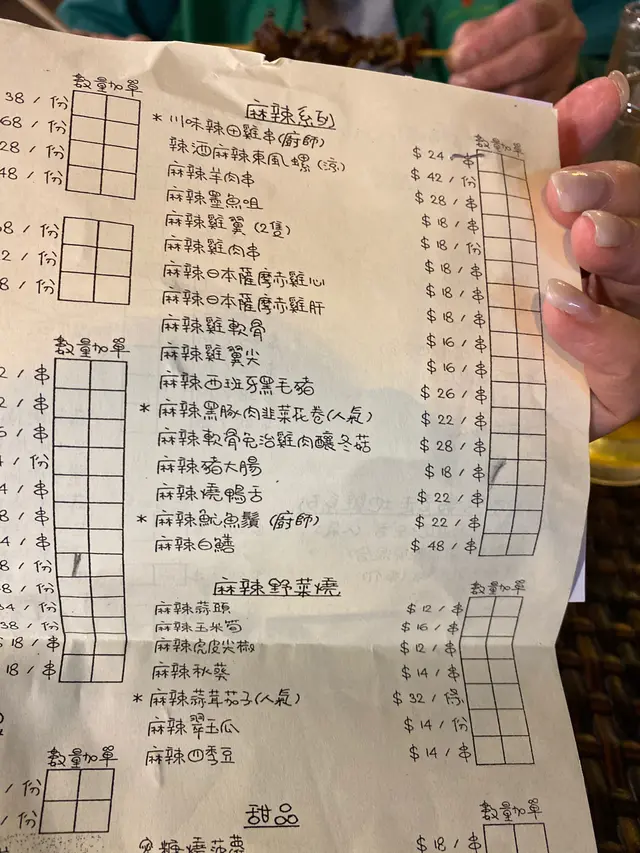 數量加單
38 / 份
68 / 份
28 / 份
48 / 份
8 / 份
2 / 份
8 / 份
數量加單
2 / 串
2 / 串
5 / 串
/ 份
4 / 串
8 / 串
4 / 串
8 / 份
8 / 份
34 / 份
18 / 串
18 / 串
數量加單
/ 份
/ 份
麻辣系列
數量加單
* 川味辣田雞串(廚師) $ 24 / 串
辣酒麻辣東風螺(涼) $ 42 / 份
麻辣羊肉串 $ 28 / 串
麻辣墨魚咀 $ 18 / 串
麻辣雞翼(2隻) $ 18 / 份
麻辣雞肉串 $ 18 / 串
麻辣日本薩摩赤雞心 $ 18 / 串
麻辣日本薩摩赤雞肝 $ 18 / 串
麻辣雞軟骨 $ 16 / 串
麻辣雞翼尖 $ 16 / 串
麻辣西班牙黑毛豬 $ 26 / 串
* 麻辣黑豚肉韭菜花卷(人氣) $ 22 / 串
麻辣軟骨免治雞肉釀冬菇 $ 28 / 串
麻辣豬大腸 $ 18 / 串
麻辣燒鴨舌 $ 22 / 串
* 麻辣魷魚鬚(廚師) $ 22 / 串
麻辣白鱔 $ 48 / 串
麻辣野菜燒
數量加單
麻辣蒜頭 $ 12 / 串
麻辣玉米筍 $ 16 / 串
麻辣虎皮尖椒 $ 12 / 串
麻辣秋葵 $ 14 / 串
* 麻辣蒜茸茄子(人氣) $ 32 / 條
麻辣翠玉瓜 $ 14 / 份
麻辣四季豆 $ 14 / 串
甜品
數量加單
蜜糖燒菠蘿 $ 18 / 串